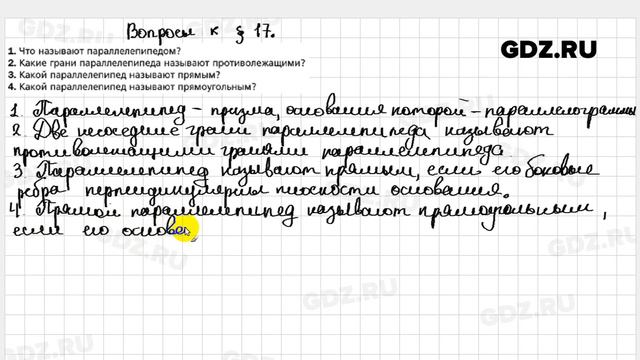 Вопросы к § 17.
GDZ.RU
1. Что называют параллелепипедом?
2. Какие грани параллелепипеда называют противолежащими?
3. Какой параллелепипед называют прямым?
4. Какой параллелепипед называют прямоугольным?
1. Параллелепипед – призма, основания которой – параллелограммы
2. Две несоседние грани параллелепипеда называют
противолежащими гранями параллелепипеда.
3. Параллелепипед называют прямым, если его боковые
ребра перпендикулярны плоскости основания.
4. Прямой параллелепипед называют прямоугольным,
если его основа
GDZ.RU
GDZ.RU
GDZ.RU
GDZ.RU